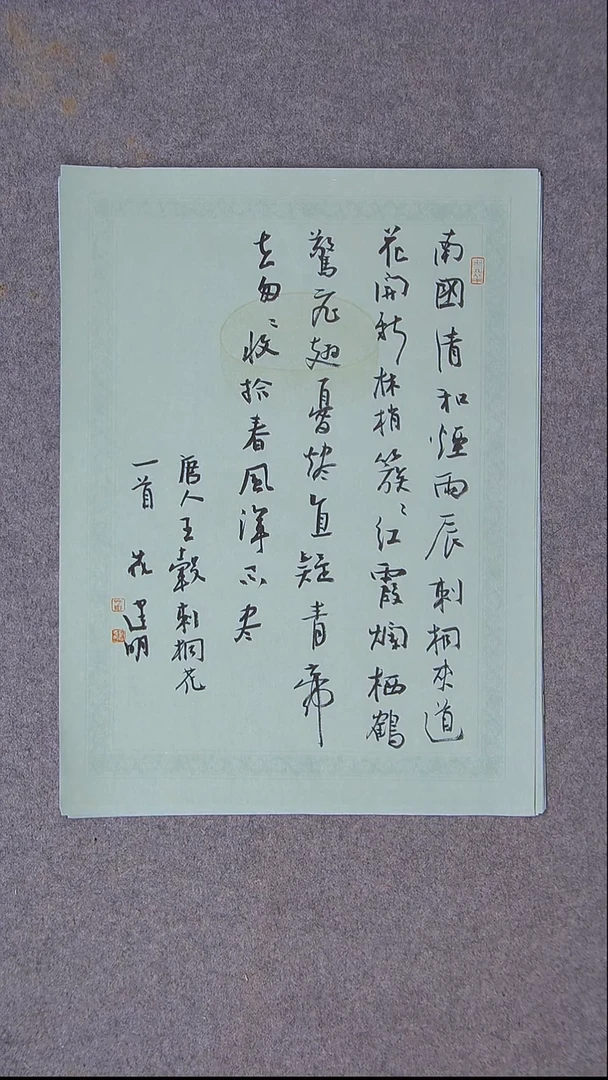 南國清和煙雨辰刺桐夾道
花開新林梢簇〻紅霞爛栖鶴
驚飛翅憂燼直疑青帝
去匆〻收拾春風渾不盡
唐人王轂刺桐花
一首 達明